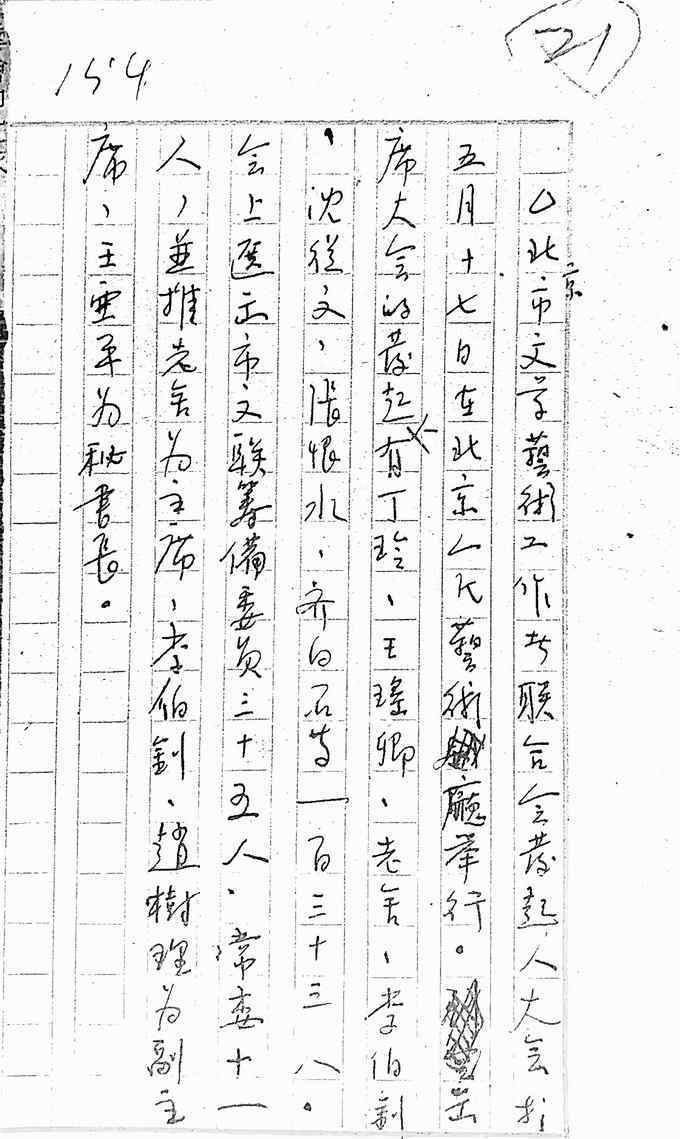 154
21
△北京市文学藝術工作者联合会發起人大会於
五月十七日在北京人民藝術廳举行。出
席大会的發起有丁玲、王瑤卿、老舍、李伯釗
、沈從文、張恨水、齐白石等一百三十三人。
会上選出市文联籌備委員三十五人、常委十一
人，並推老舍为主席，李伯釗、趙樹理为副主
席，王亞平为秘書長。